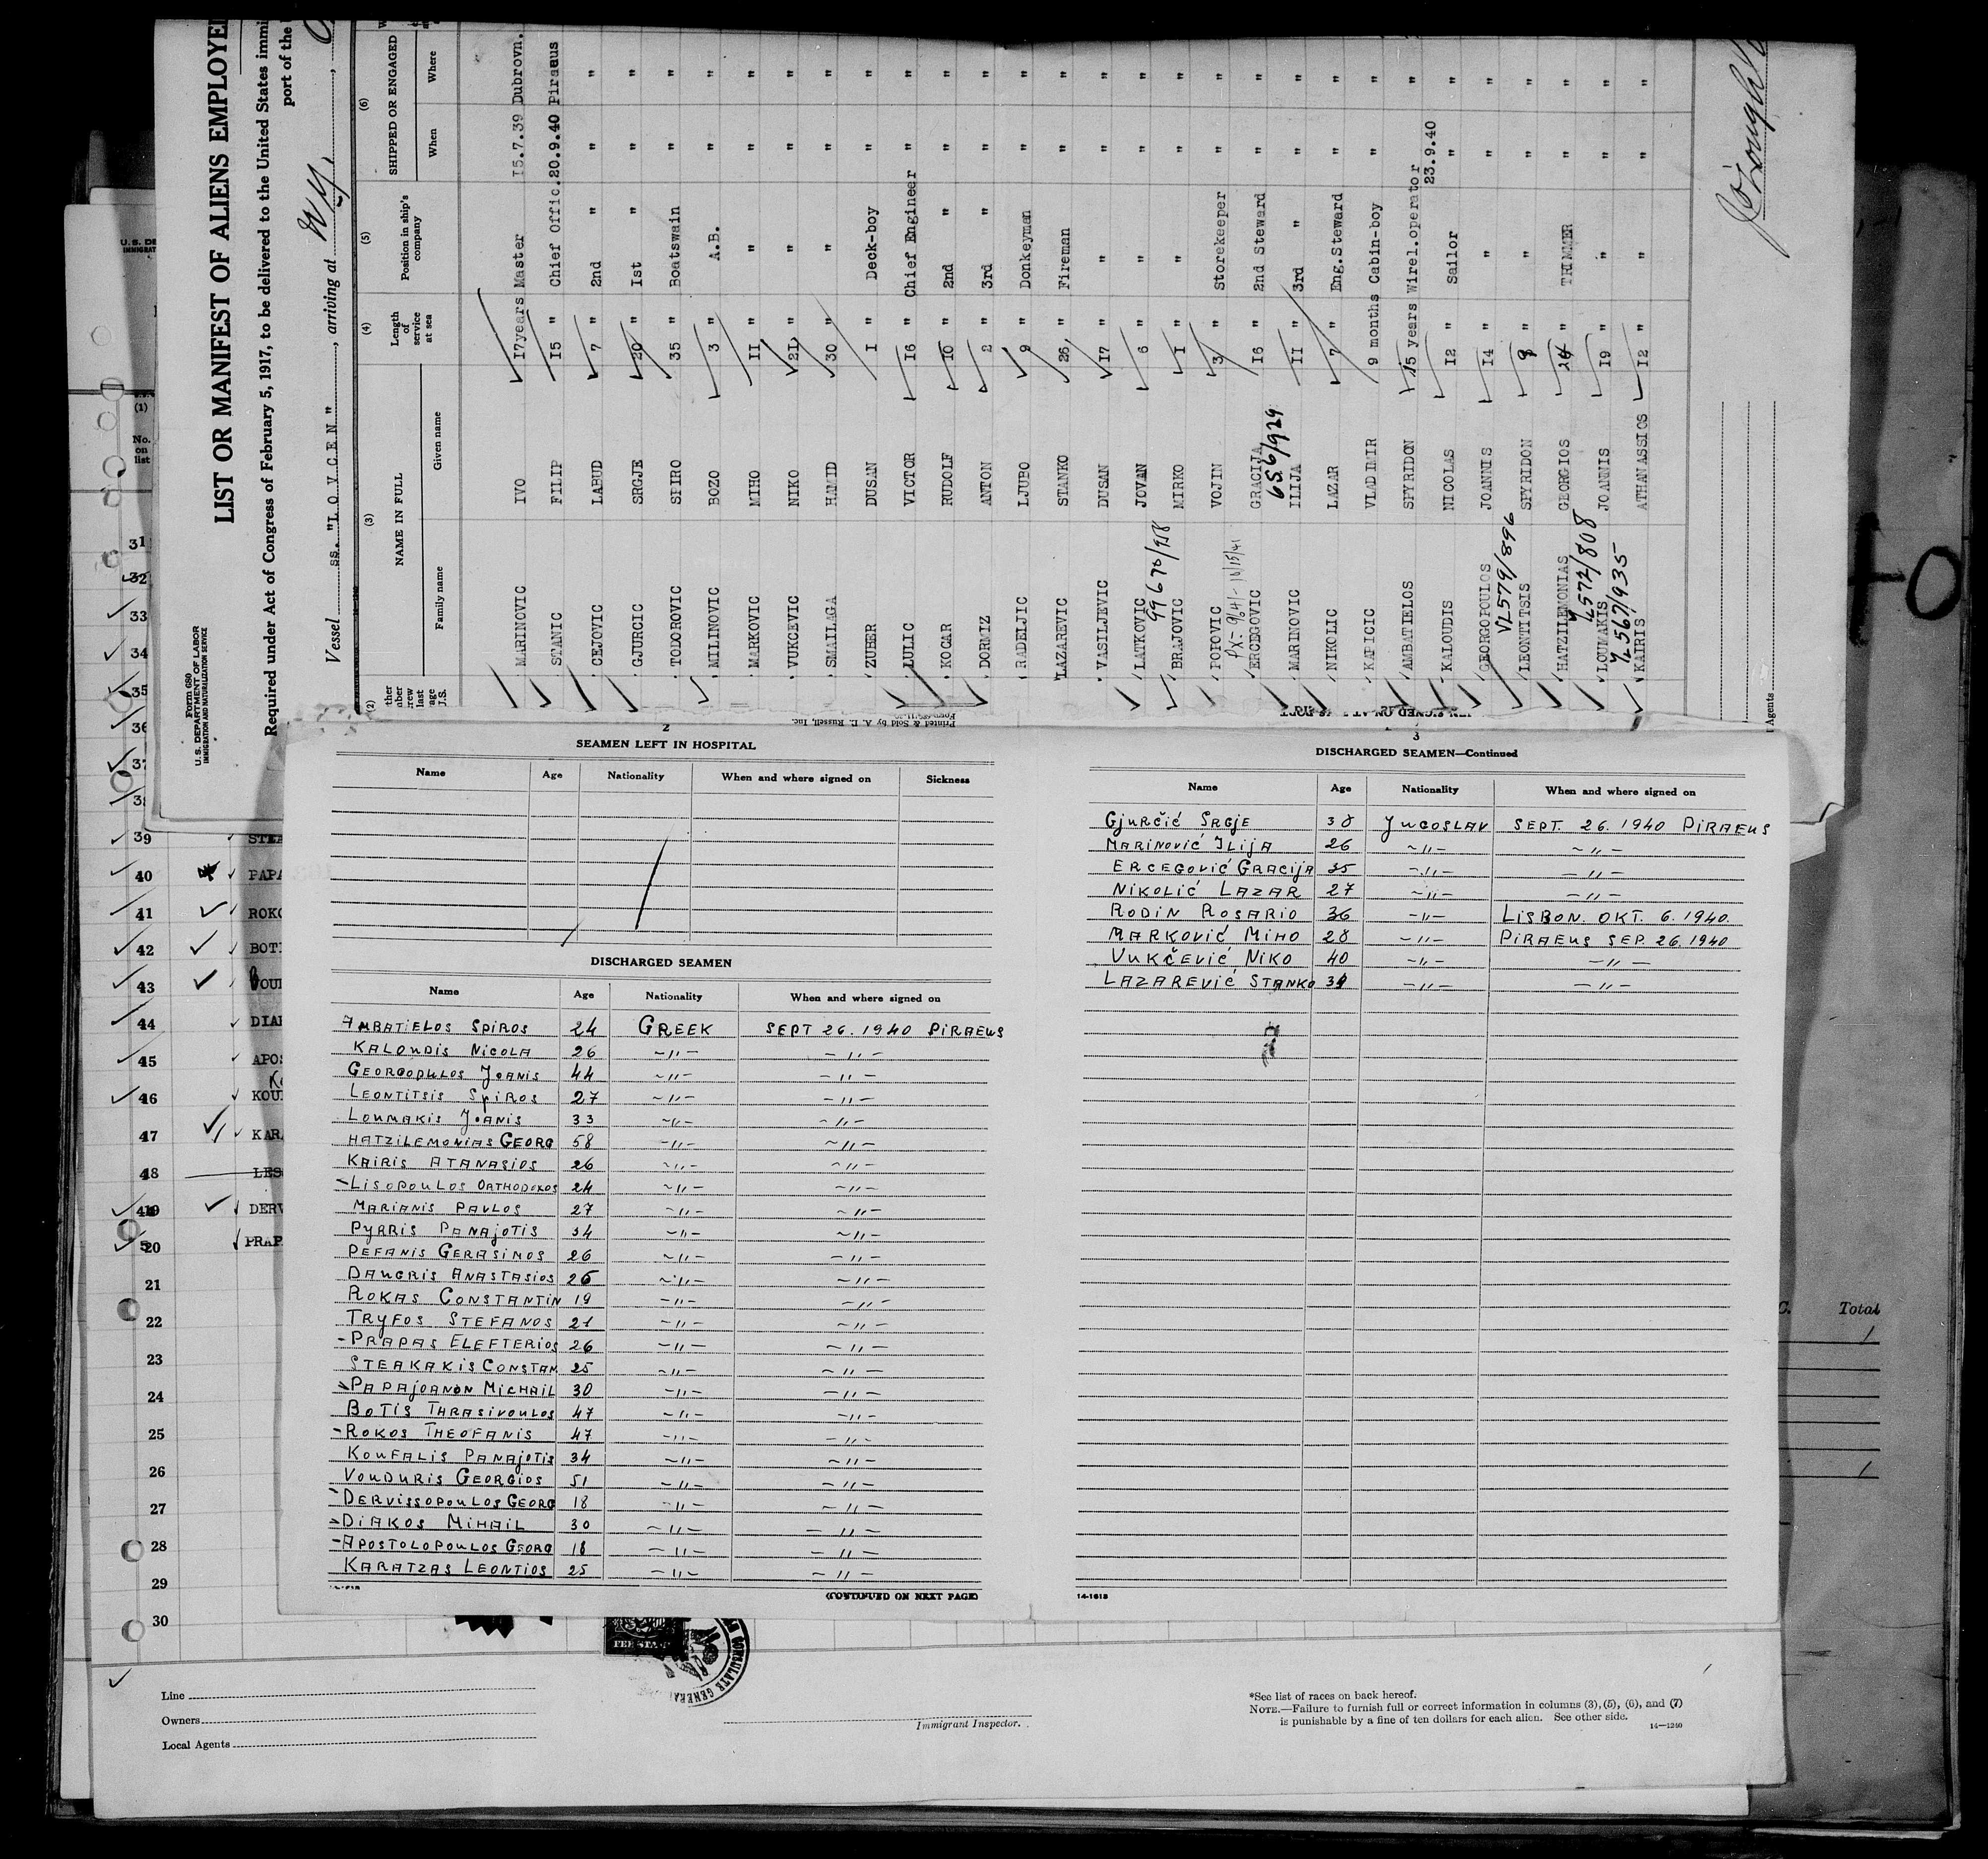 LIST OR MANIFEST OF ALIENS EMPLOYE
Required under Act of Congress of February 5, 1917, to be delivered to the United States immi
port of the
Form 680
U. S. DEPARTMENT OF LABOR
IMMIGRATION AND NATURALIZATION SERVICE
Vessel ss. "LOVCEN", arriving at N.Y.,
(2) (3) (4) (5) (6)
NAME IN FULL
Family name Given name
Length of service at sea
Position in ship's company
SHIPPED OR ENGAGED
When Where
MARINOVIC IVO 17years Master 15.7.39 Dubrovn.
STANIC FILIP 15 " Chief Offic. 20.9.40 Piraeus
CEJOVIC LABUD 7 " 2nd " " "
GJURCIC SRGJE 20 " Ist " " "
TODOROVIC SPIRO 35 " Boatswain " "
MILINOVIC BOZO 3 " A.B. " "
MARKOVIC MIHO II " " " "
VUKCEVIC NIKO 21 " " " "
SMAILAGA HAMID 30 " " " "
ZUBER DUSAN I " Deck-boy " "
LULIC VICTOR 16 " Chief Engineer " "
KOGAR RUDOLF 10 " 2nd " " "
DORMIZ ANTON 2 " 3rd " " "
RADELJIC LJUBO 9 " Donkeyman " "
LAZAREVIC STANKO 26 " Fireman " "
VASILJEVIC DUSAN 17 " " " "
LATKOVIC JOVAN 6 " " " "
99670/958
BRAJOVIC MIRKO I " " " "
POPOVIC VOJIN 3 " Storekeeper " "
ERCEGOVIC GRACIJA 16 " 2nd Steward " "
656/929
MARINOVIC ILIJA II " 3rd " " "
NIKOLIC LAZAR 7 " Eng.Steward " "
KAPICIC VLADIMIR 9 months Cabin-boy " "
AMBATIELOS SPYRIDON 15 years Wirel.operator 23.9.40 "
KALOUDIS NICOLAS 12 " Sailor " "
GEORGOPOULOS JOANNIS 14 " " " "
VL579/896
LEONTITSIS SPYRIDON 9 " " " "
HATZILEMONIAS GEORGIOS 24 " TRIMMER " "
572/808
LOUMAKIS JOANNIS 19 " " " "
567/935
KAIRIS ATHANASSIOS 12 " " " "
Agents
Printed & Sold by A. E. Russell, Inc.
2
SEAMEN LEFT IN HOSPITAL
Name Age Nationality When and where signed on Sickness
DISCHARGED SEAMEN
Name Age Nationality When and where signed on
AMBATIELOS SPIROS 24 GREEK SEPT 26. 1940 PIRAEUS
KALOUDIS NICOLA 26 -"- -"-
GEORGOPULOS JOANIS 44 -"- -"-
LEONTITSIS SPIROS 27 -"- -"-
LOUMAKIS JOANIS 33 -"- -"-
HATZILEMONIAS GEORG 58 -"- -"-
KAIRIS ATANASIOS 26 -"- -"-
-LISOPOULOS ORTHODOXOS 24 -"- -"-
MARIANIS PAVLOS 27 -"- -"-
PYRRIS PANAJOTIS 34 -"- -"-
PEFANIS GERASIMOS 26 -"- -"-
DAUGRIS ANASTASIOS 26 -"- -"-
ROKAS CONSTANTIN 19 -"- -"-
TRYFOS STEFANOS 21 -"- -"-
-PRAPAS ELEFTERIOS 26 -"- -"-
STEAKAKIS CONSTAN 25 -"- -"-
-PAPAJOANON MICHAIL 30 -"- -"-
BOTIS THRASIVOULOS 47 -"- -"-
-ROKOS THEOFANIS 47 -"- -"-
KOUFALIS PANAJOTIS 34 -"- -"-
VOUDURIS GEORGIOS 51 -"- -"-
-DERVISSOPOULOS GEORG 18 -"- -"-
-DIAKOS MIHAIL 30 -"- -"-
-APOSTOLOPOULOS GEORG 18 -"- -"-
KARATZAS LEONTIOS 25 -"- -"-
(CONTINUED ON NEXT PAGE)
3
DISCHARGED SEAMEN—Continued
Name Age Nationality When and where signed on
GJURČIĆ SRGJE 38 JUGOSLAV SEPT. 26. 1940 PIRAEUS
MARINOVIĆ ILIJA 26 -"- -"-
ERCEGOVIĆ GRACIJA 35 -"- -"-
NIKOLIĆ LAZAR 27 -"- -"-
RODIN ROSARIO 36 -"- LISBON. OKT. 6. 1940.
MARKOVIĆ MIHO 28 -"- PIRAEUS SEP. 26. 1940
VUKČEVIĆ NIKO 40 -"- -"-
LAZAREVIĆ STANKO 39 -"- -"-
14-1618
(1)
No. on list
31
32
33
34
35
36
37
38
39 STEA
40 PAPA
41 ROKO
42 BOTI
43 VOU
44 DIA
45 APOS
46 KOU
47 KARA
48 LES
49 DERV
50 PRAP
21
22
23
24
25
26
27
28
29
30
C. Total
1
1
FEE STA
CONSULATE GENERAL
Line
Owners
Local Agents
Immigrant Inspector.
*See list of races on back hereof.
NOTE.—Failure to furnish full or correct information in columns (3), (5), (6), and (7)
is punishable by a fine of ten dollars for each alien. See other side.
14—1240